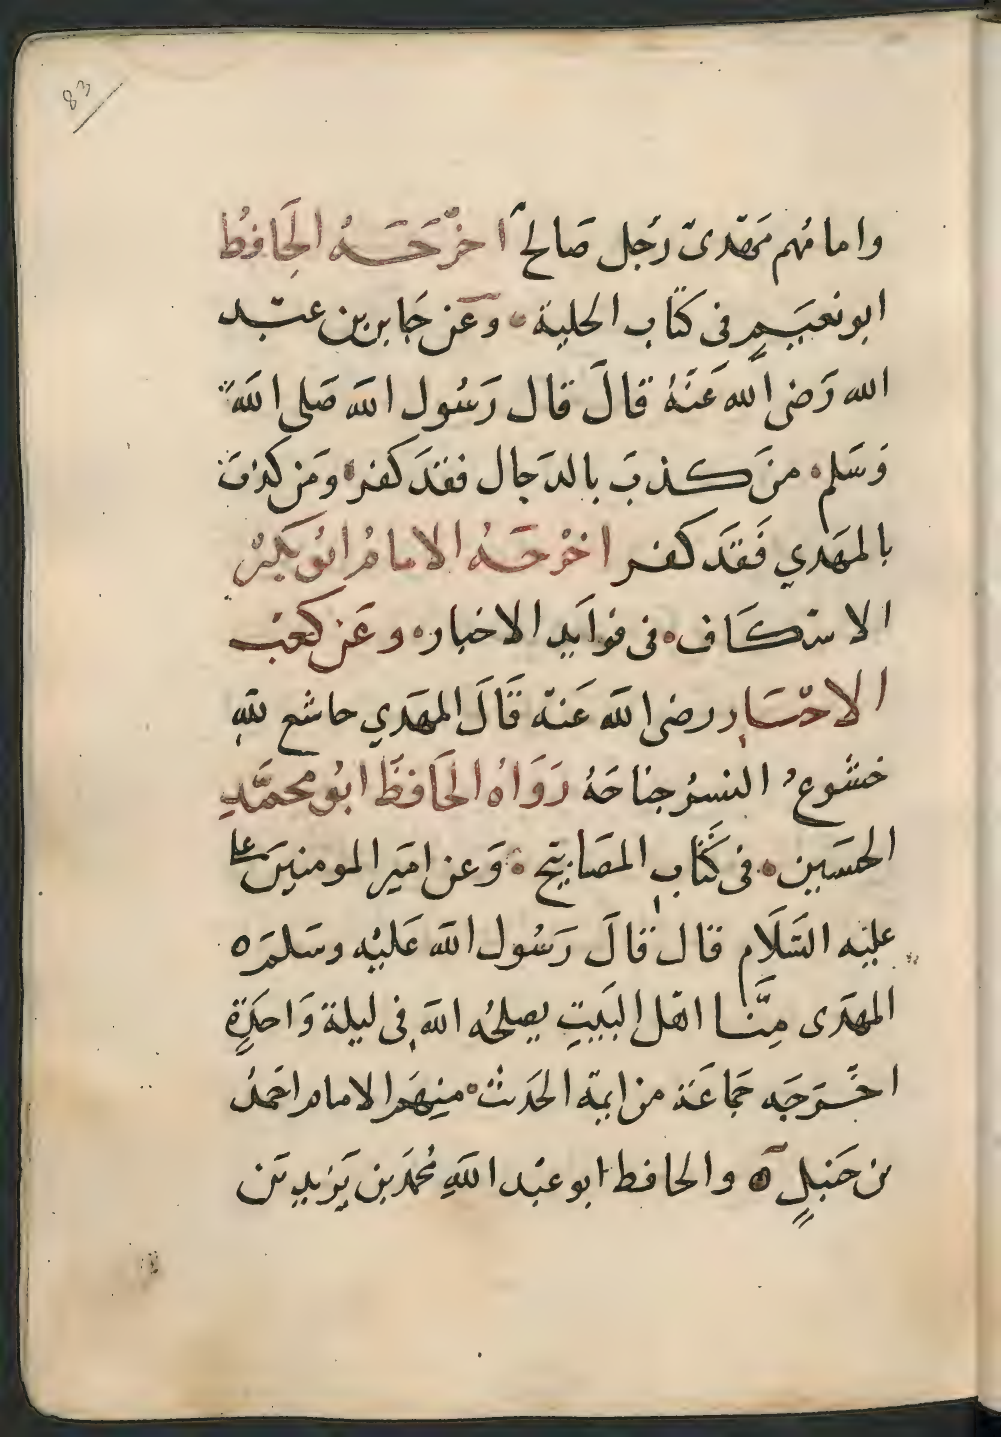 83
وامامُهم مَهْدىّ رَجُل صَالح اخرّجَهُ الحَافِظ
ابونعيَمٍ فى كتَاب الحلية وعَن جَابر بن عبْد
الله رَضى الله عَنهُ قالَ قال رَسُول الله صَلى الله
وَسَلم منَ كذبَ بالدَجال فقدَ كفر ومَن كذبَ
بالمهَدي فَقدَ كفر اخرْجَهُ الامامُ ابُو بكرْ
الاسْكَاف فى فوايد الاخبار وعَن كعْب
الاحْبَار رضى الله عَنهْ قَالَ المهَدي خاشع للهِ
خشوعُ النسرُ جناحَهُ رَوَاهُ الحَافظَ ابُو محمَّدٍ
الحسَين فى كتَاب المصَابيَح وَعن اميَر المومنينَ على
عليْه السَّلَام قال قالَ رَسُول الله عَليْه وسَلمَ
المهدَى مِنَّا اهْل البَيتِ يصلحُه اللهَ فى ليلة وَاحدَةٍ
اخَّرجَه جَماعَة من ايمة الحَدث منهَم الامام احَمدُ
بن حَنبلٍ والحافظ ابو عبْد اللهِ محُمدَ بن يَزيد بَن